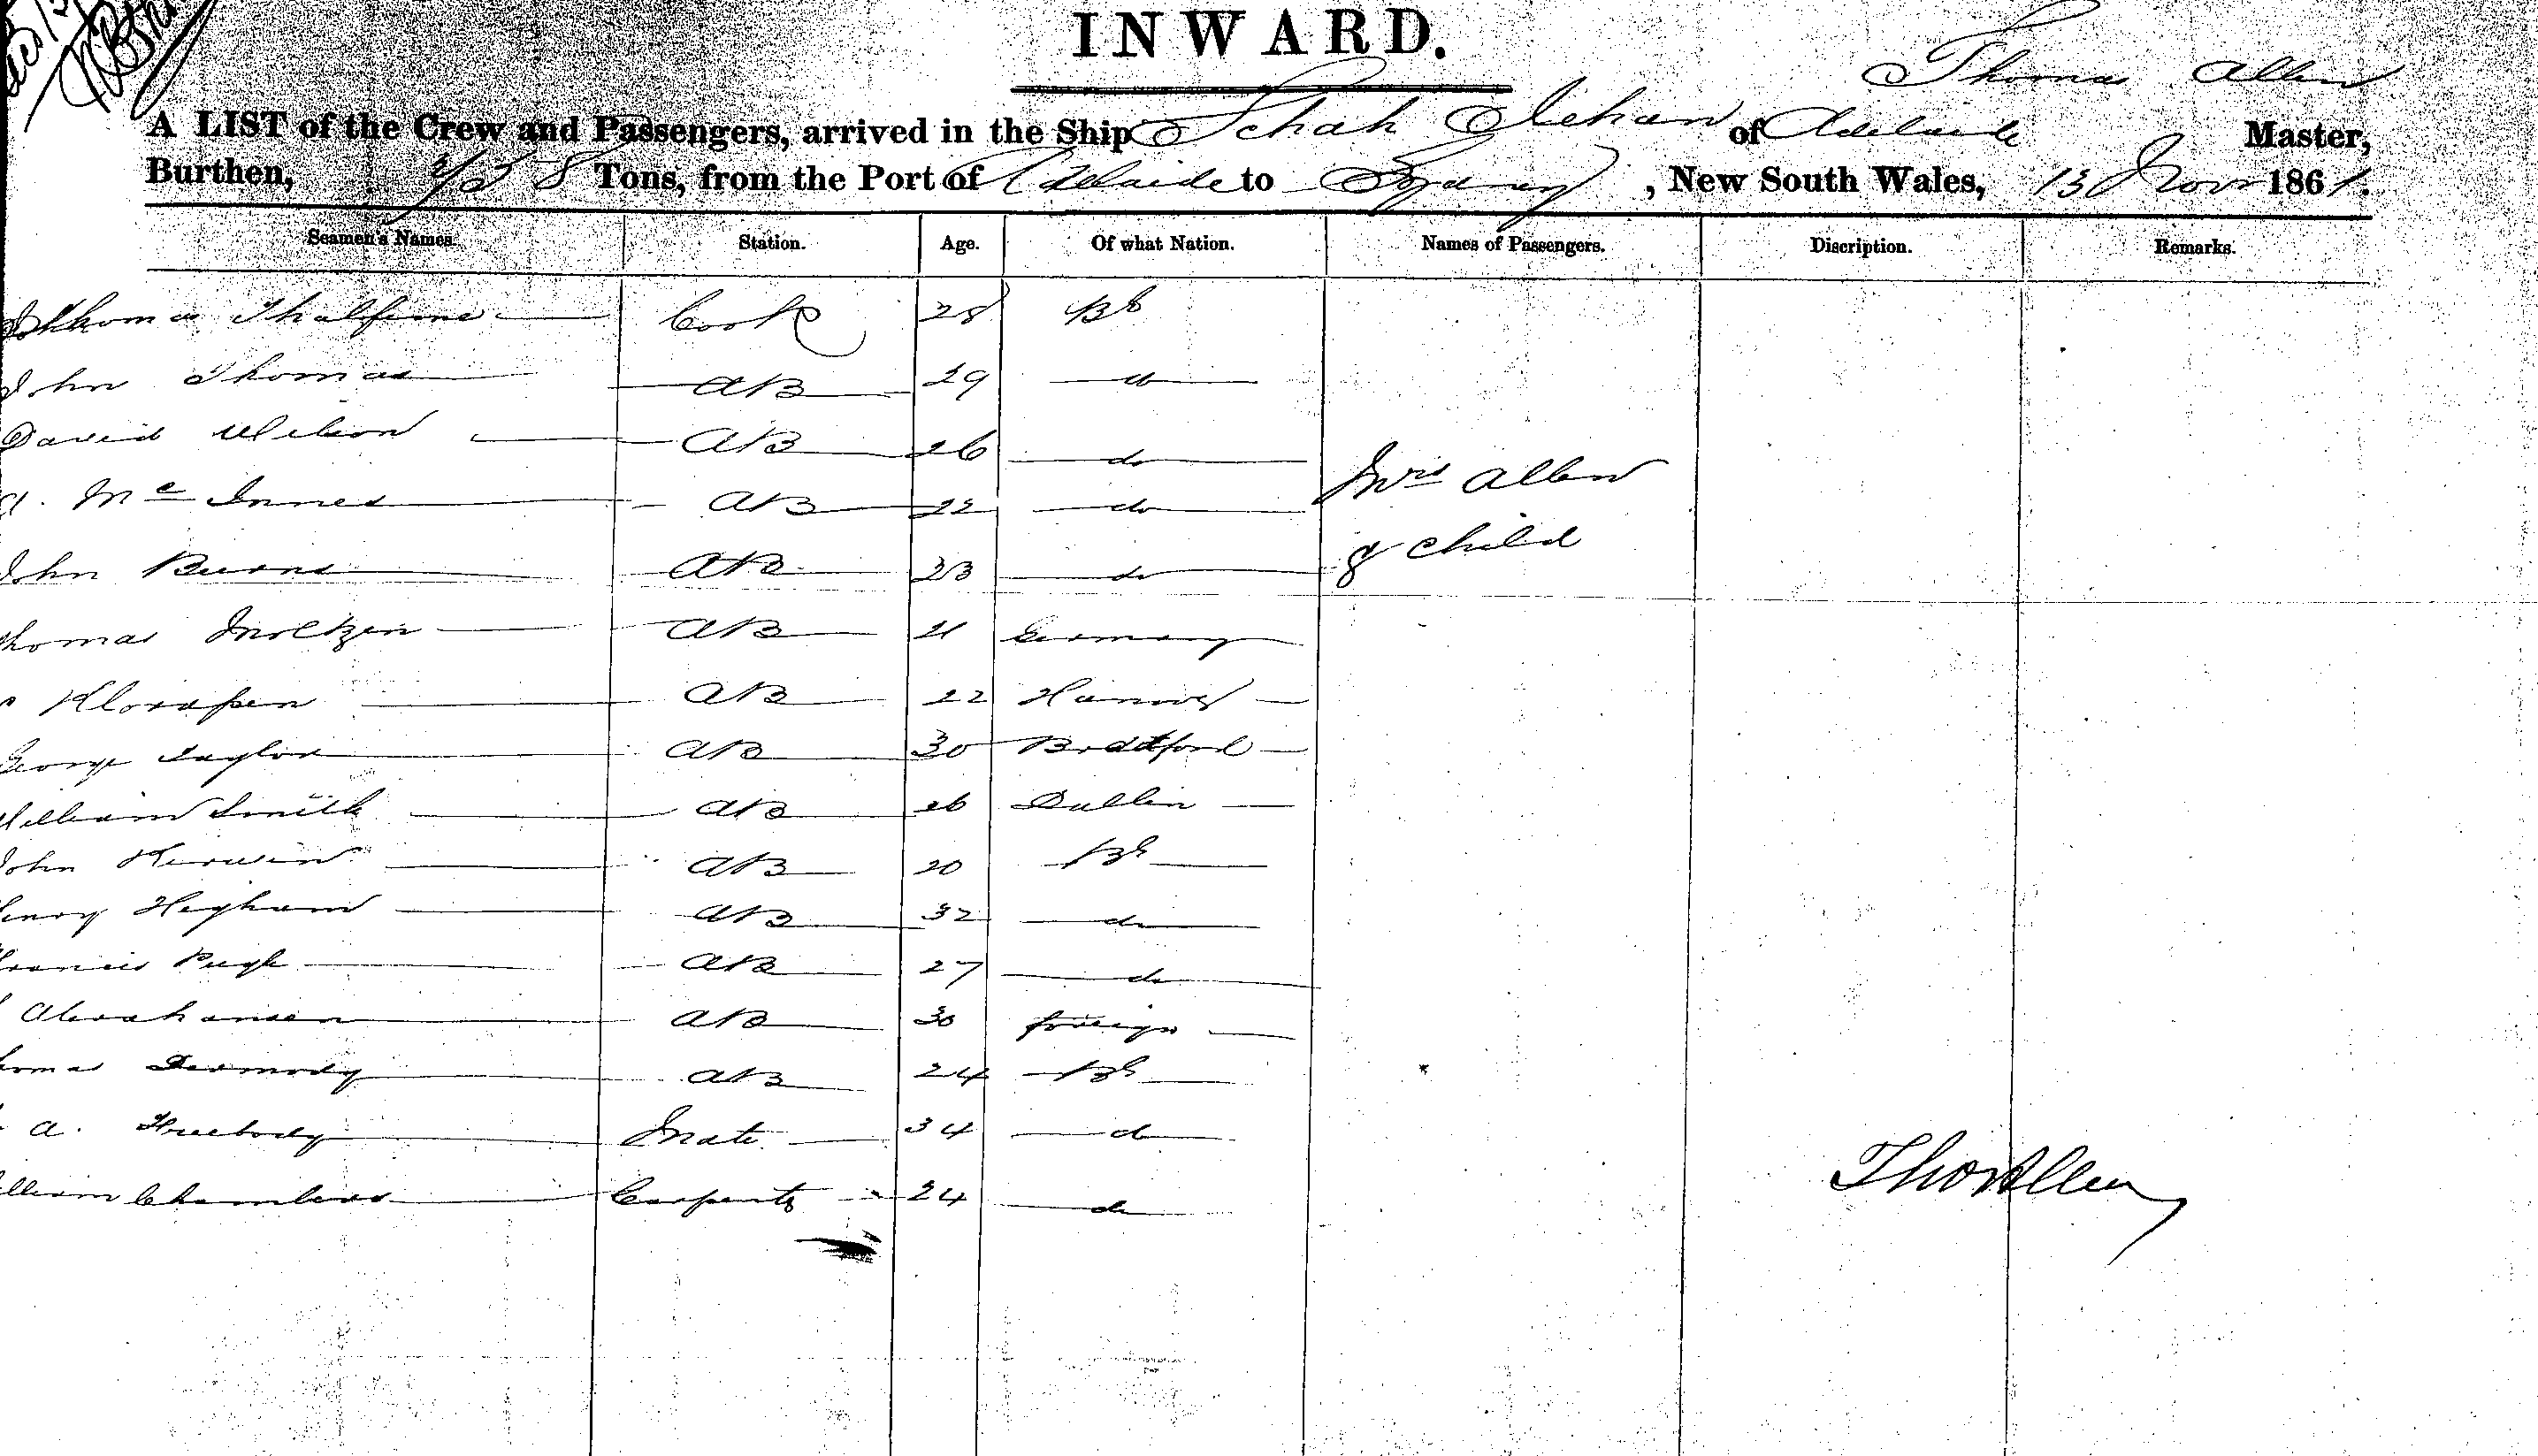 INWARD.
Thomas Allen
A LIST of the Crew and Passengers, arrived in the Ship Schah Jehan of Adelaide Master,
Burthen, Tons, from the Port of Adelaide to Sydney, New South Wales, 13 Novr 1861.
Seamen's Names. Station. Age. Of what Nation. Names of Passengers. Discription. Remarks.
Thomas Cook 28 Bh
John Thomas AB 29 do
David Wilson AB 26 do
A. Mc Innes AB 22 do Mrs Allen
John Burns AB 23 do & child
Thomas Moltzen AB 21 Germany
AB 22 Hanover
George Taylor AB 30 Bradford
William Smith AB 26 Dublin
John Kerwin AB 20 Bh
Henry Higham AB 32 do
Francis Pugh AB 27 do
Abrahansen AB 30 foreign
Thomas Dermody AB 24 Bh
A. Freebody Mate 34 do
William Chambers Carpenter 24 do
Thos Allen